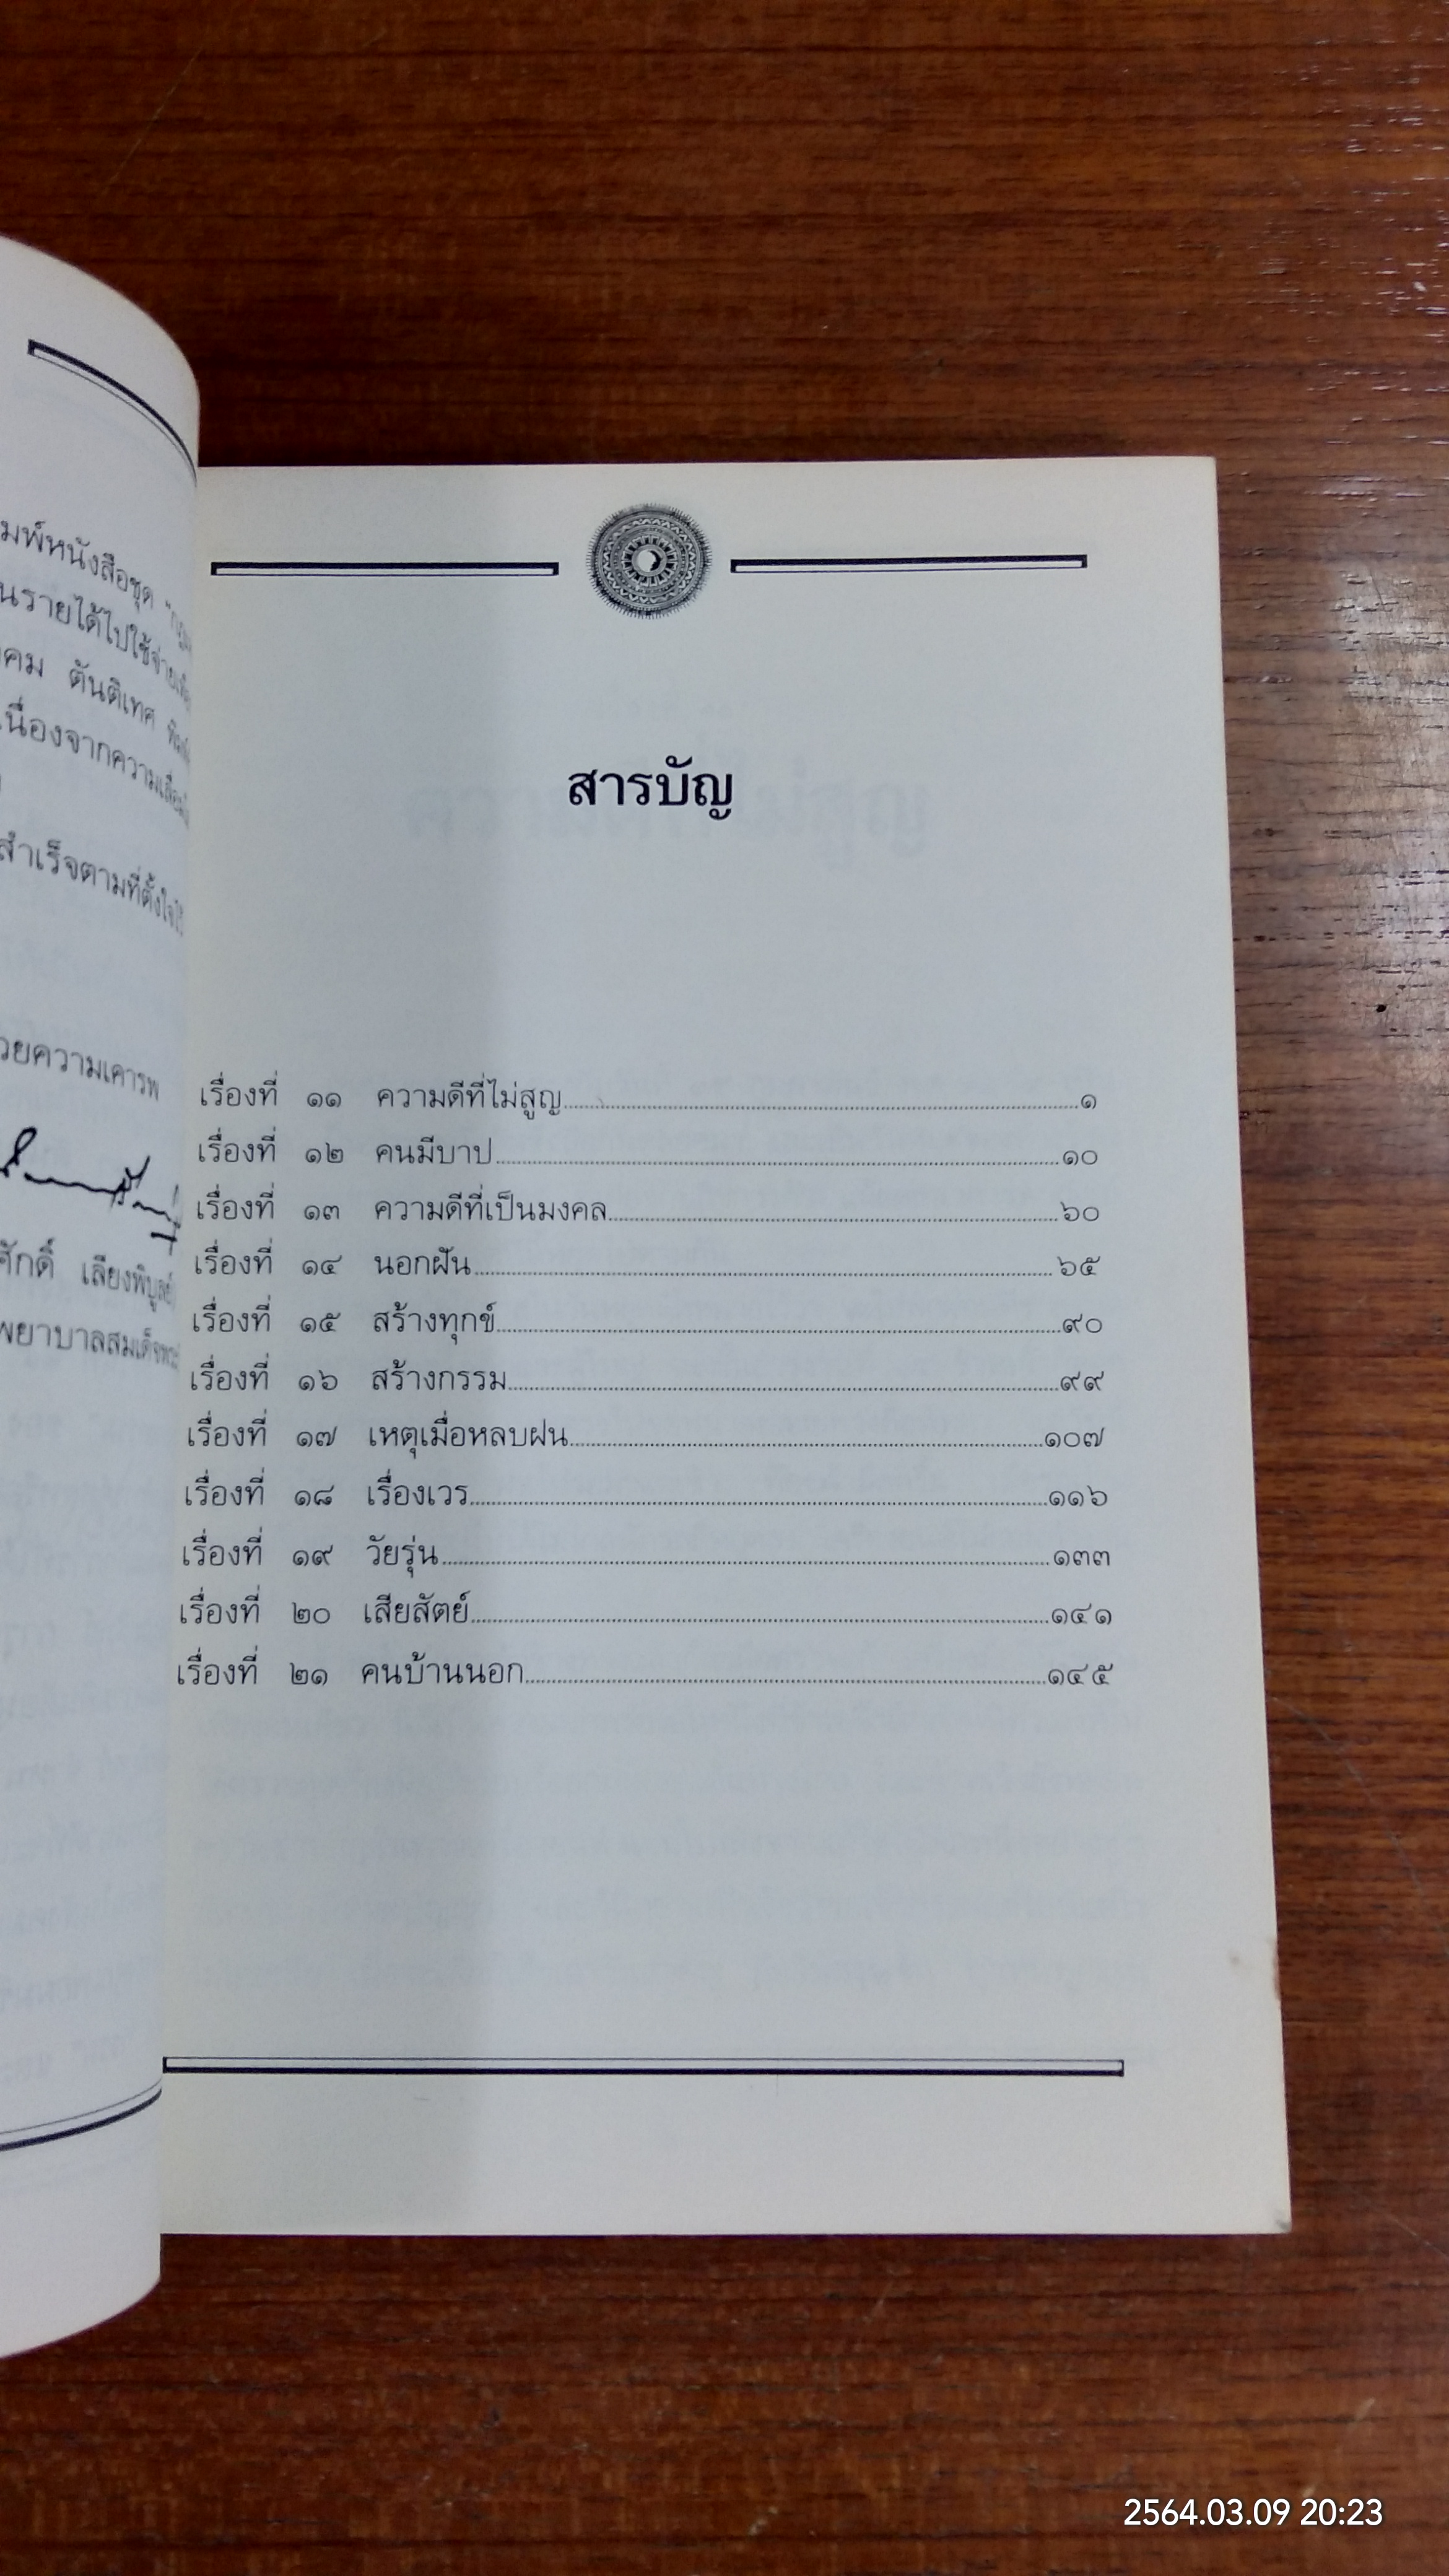 มพ์หนังสือชุด
นรายได้ไปใช้จ่าย
คม ตันติเทศ
เนื่องจากความ
สำเร็จตามที่ตั้งใจไว้
วยความเคารพ
ศักดิ์ เลียงพิบูลย์
พยาบาลสมเด็จ
สารบัญ
เรื่องที่ ๑๑ ความดีที่ไม่สูญ ๑
เรื่องที่ ๑๒ คนมีบาป ๑๐
เรื่องที่ ๑๓ ความดีที่เป็นมงคล ๖๐
เรื่องที่ ๑๔ นอกฝัน ๖๕
เรื่องที่ ๑๕ สร้างทุกข์ ๙๐
เรื่องที่ ๑๖ สร้างกรรม ๙๙
เรื่องที่ ๑๗ เหตุเมื่อหลบฝน ๑๐๗
เรื่องที่ ๑๘ เรื่องเวร ๑๑๖
เรื่องที่ ๑๙ วัยรุ่น ๑๓๓
เรื่องที่ ๒๐ เสียสัตย์ ๑๔๑
เรื่องที่ ๒๑ คนบ้านนอก ๑๔๕
2564.03.09 20:23